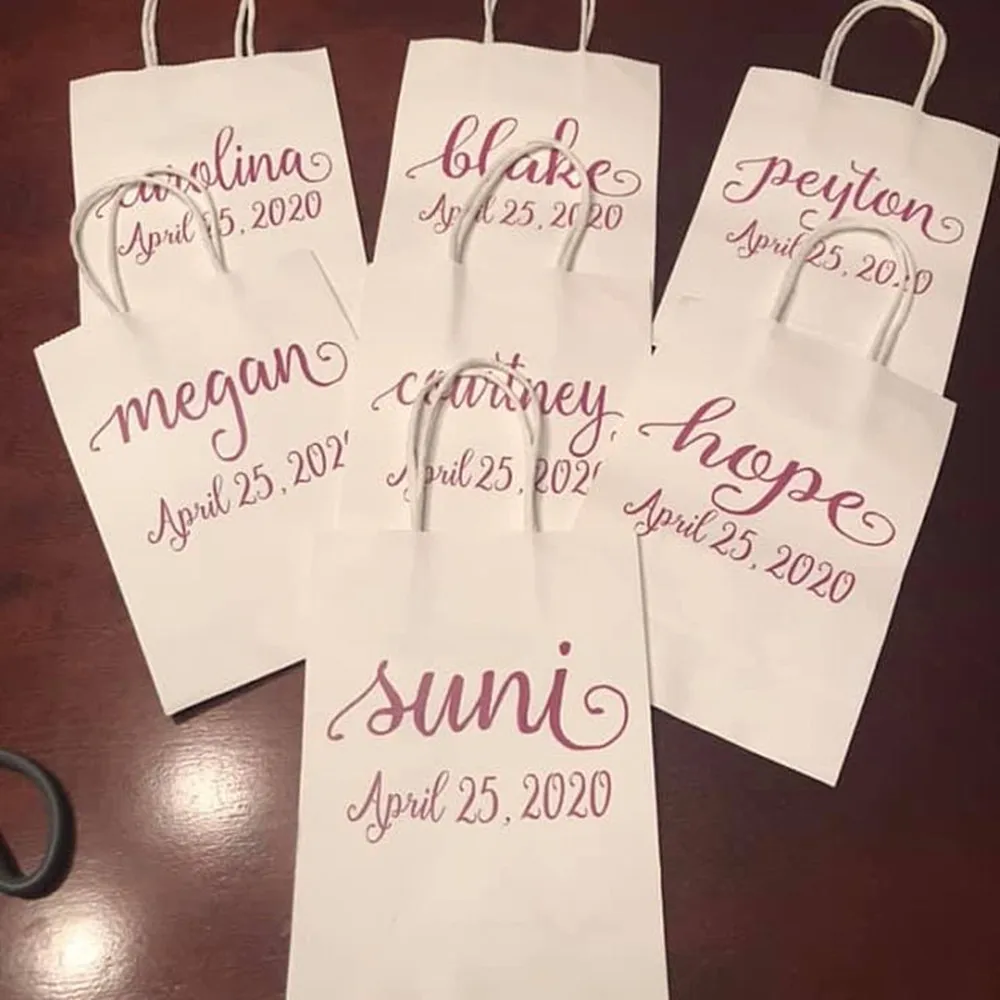 carolina
April 25, 2020
blake
April 25, 2020
peyton
April 25, 2020
megan
April 25, 202
courtney
April 25, 202
hope
April 25, 2020
suni
April 25, 2020